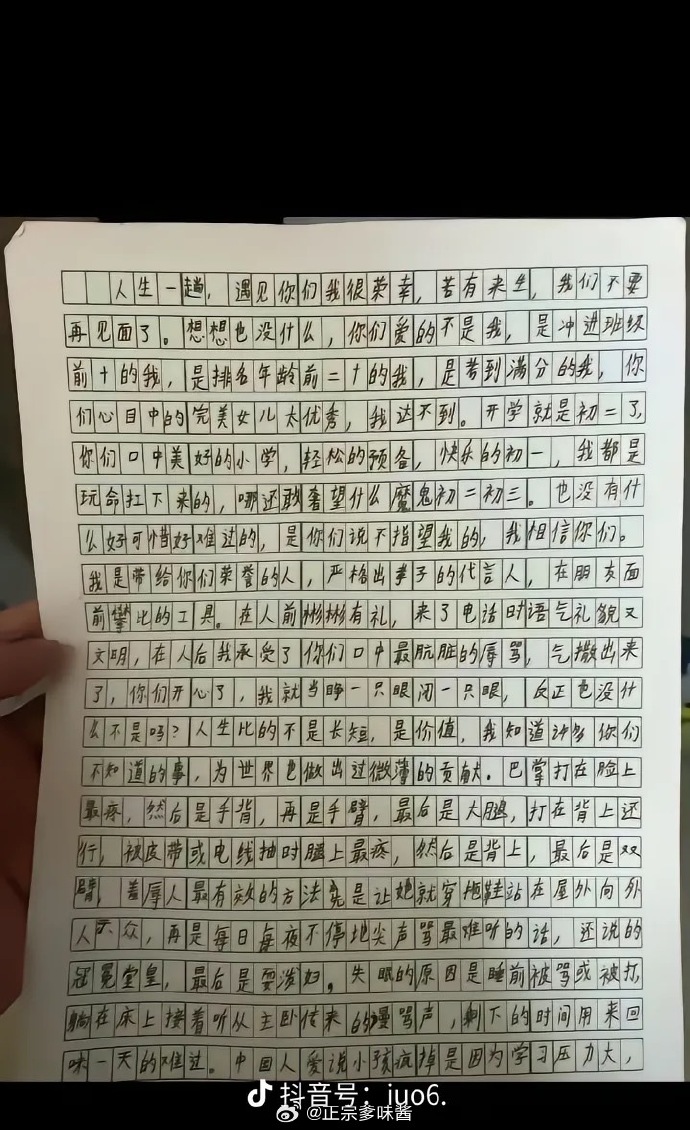 人生一趟，遇见你们我很荣幸，若有来生，我们不要
再见面了。想想也没什么，你们爱的不是我，是冲进班级
前十的我，是排名年龄前二十的我，是考到满分的我，你
们心目中的完美女儿太优秀，我达不到。开学就是初二了，
你们口中美好的小学，轻松的预备，快乐的初一，我都是
玩命扛下来的，哪还敢奢望什么魔鬼初二初三。也没有什
么好可惜好难过的，是你们说不指望我的，我相信你们。
我是带给你们荣誉的人，严格出孝子的代言人，在朋友面
前攀比的工具。在人前彬彬有礼，来了电话时语气礼貌又
文明，在人后我承受了你们口中最肮脏的辱骂，气撒出来
了，你们开心了，我就当睁一只眼闭一只眼，反正也没什
么不是吗？人生比的不是长短，是价值，我知道许多你们
不知道的事，为世界也做出过微薄的贡献。巴掌打在脸上
最疼，然后是手背，再是手臂，最后是大腿，打在背上还
行，被皮带或电线抽时腿上最疼，然后是背上，最后是双
臂，羞辱人最有效的方法竟是让她就穿拖鞋站在屋外向外
人示众，再是每日每夜不停地尖声骂最难听的话，还说的
冠冕堂皇，最后是耍泼妇。失眠的原因是睡前被骂或被打，
躺在床上接着听从主卧传来的谩骂声，剩下的时间用来回
味一天的难过。中国人爱说小孩疯掉是因为学习压力大，
抖音号：iuo6.
@正宗爹味酱